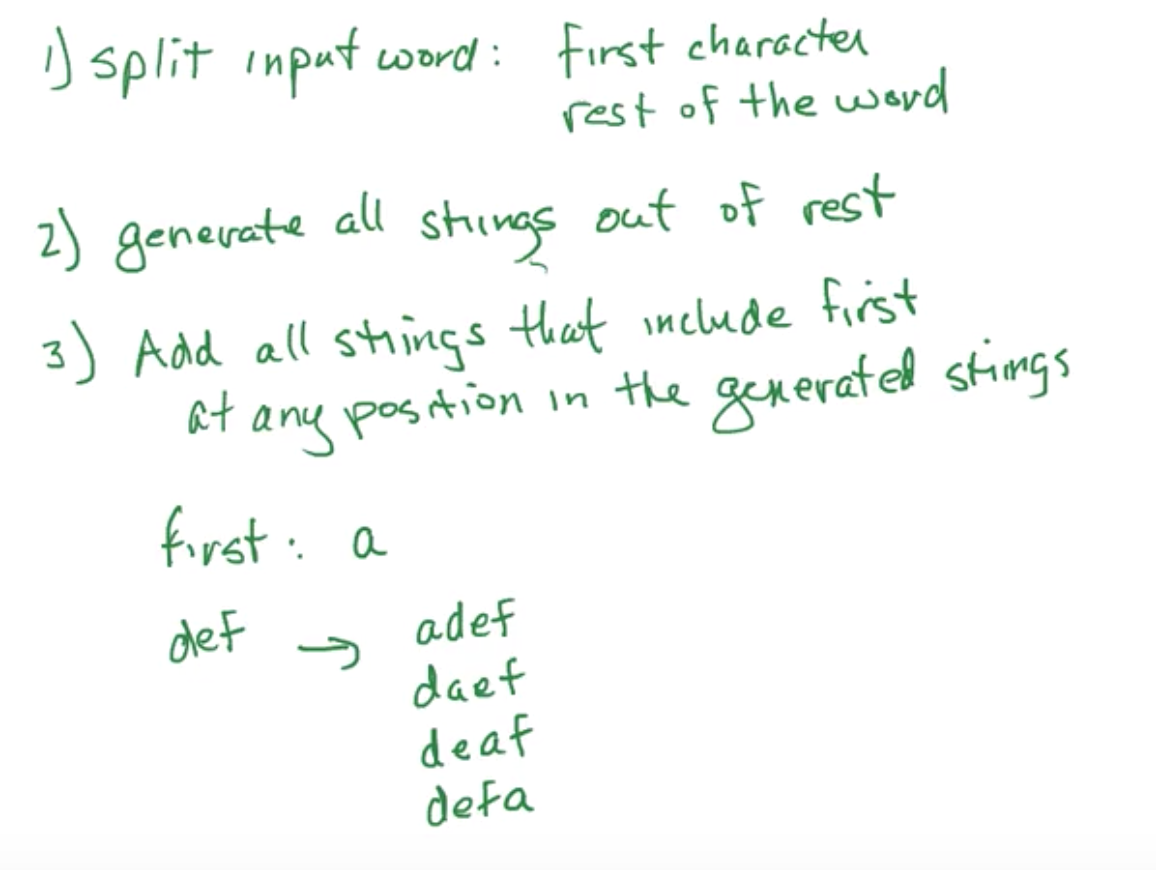 1) split input word: first character
rest of the word
2) generate all strings out of rest
3) Add all strings that include first
at any position in the generated stings
first: a
def → adef
daef
deaf
defa